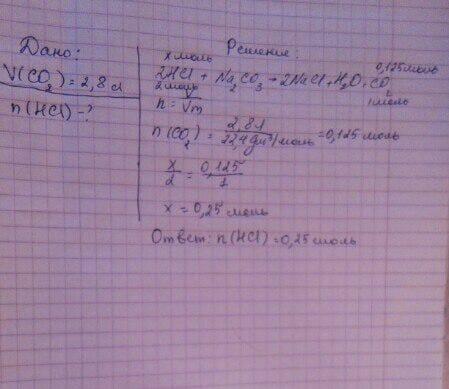 Дано:
V(CO2) = 2,8 л
n(HCl) - ?
Решение:
x моль 0,125 моль
2HCl + Na2CO3 → 2NaCl + H2O + CO2
2 моль 1 моль
n = Vm
n(CO2) = 2,8л / 22,4 дм³/моль = 0,125 моль
x/2 = 0,125/1
x = 0,25 моль
Ответ: n(HCl) = 0,25 моль